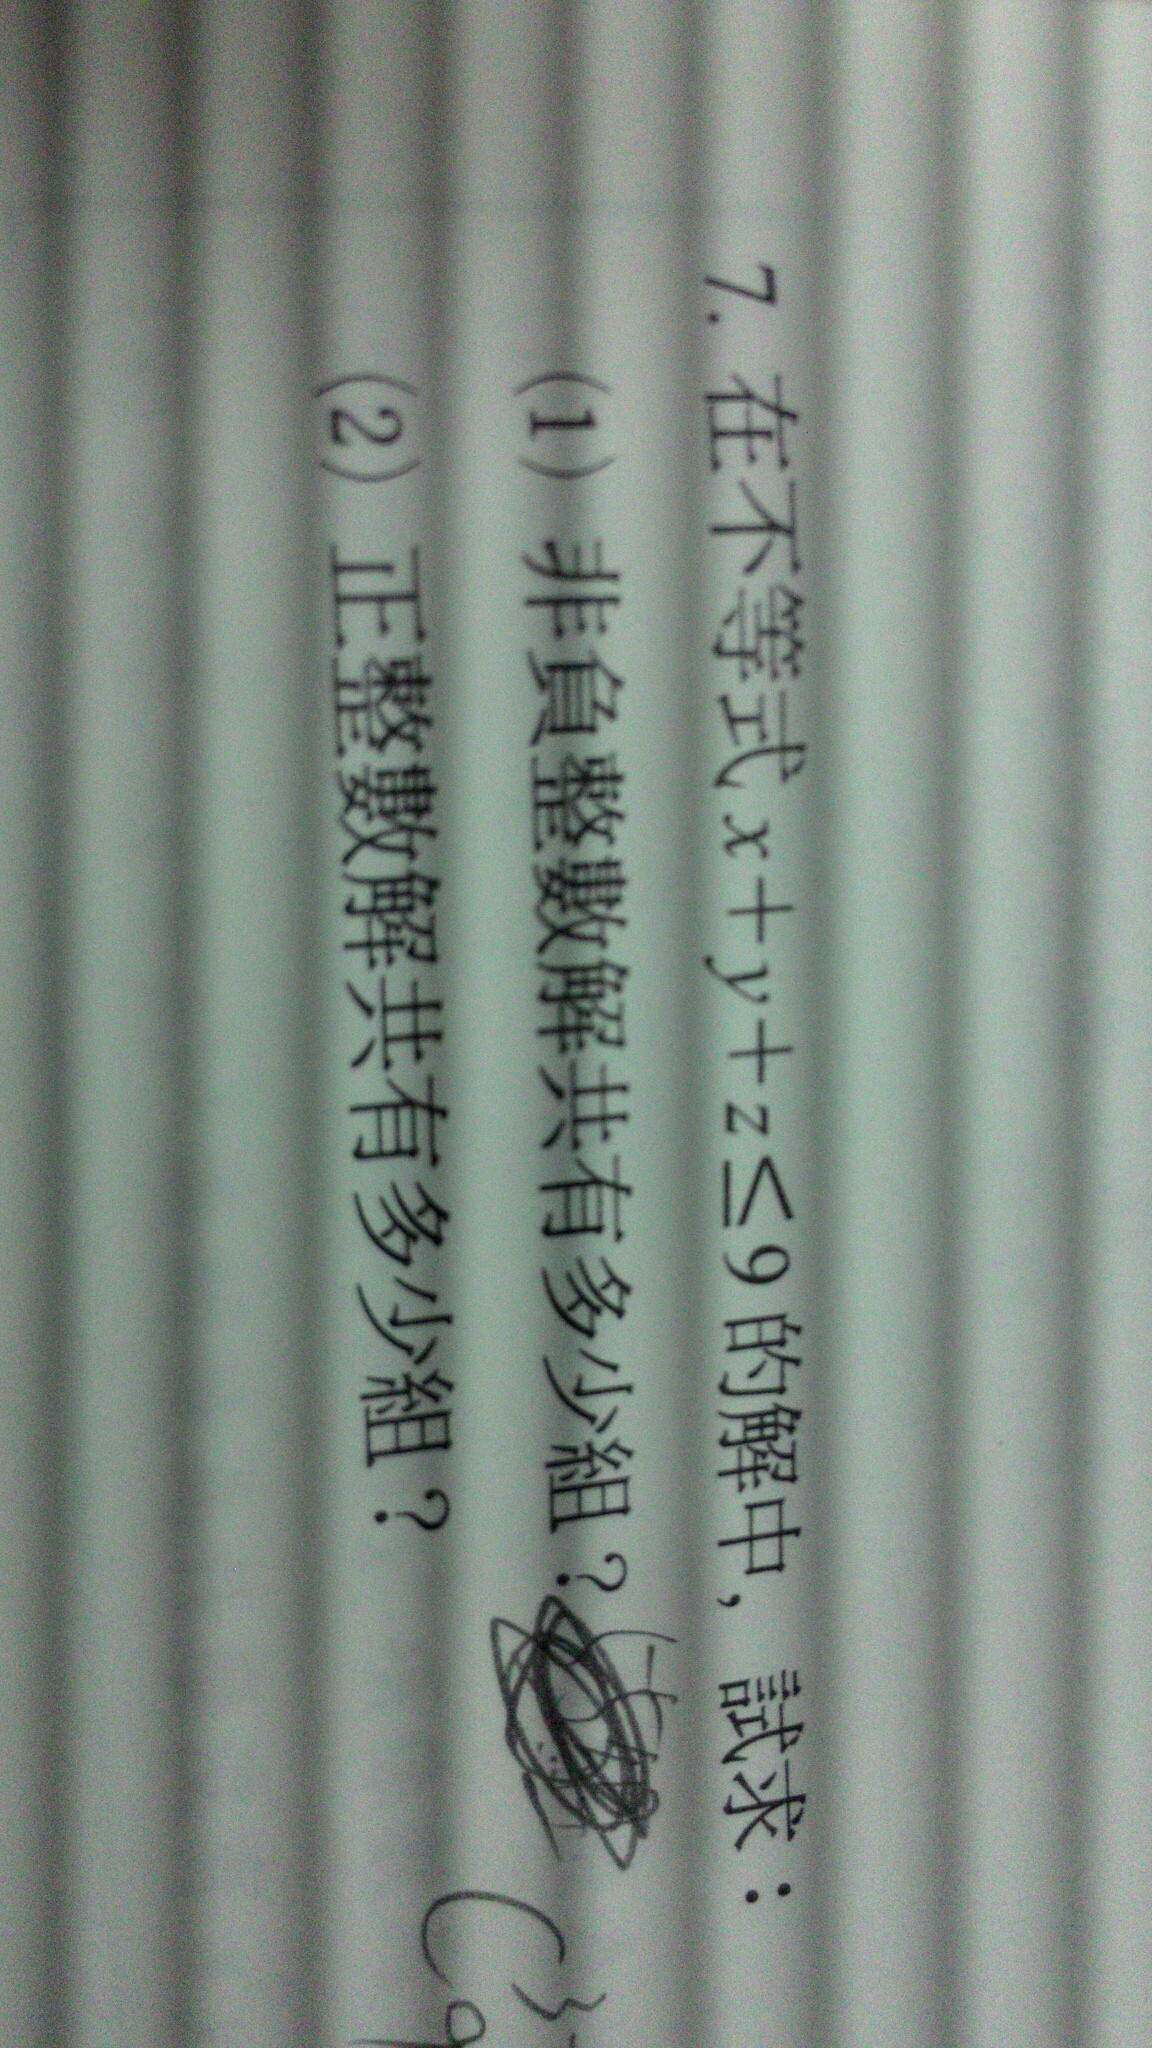 7. 在不等式 x+y+z≤9 的解中，試求：
(1) 非負整數解共有多少組？
(2) 正整數解共有多少組？